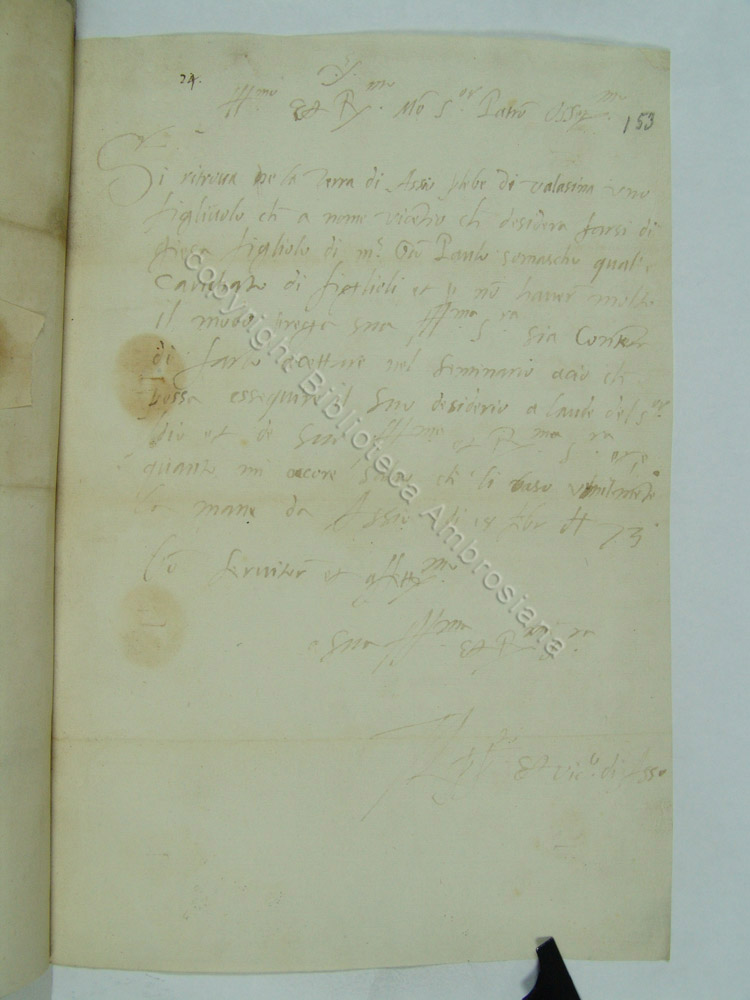 24.
Ill.mo Et R.mo Mo S.or Patro Oss.mo
153
Si ritroua ne la Terra di Assio plebe di valasina uno
figliuolo ch a nome vicetio ch desidera farsi di
giesa figliolo di m.r Paulo somascho qual e
Caricato di figlioli et p nō hauer molto
il modo prega sua Ill.ma S.ra sia Contēta
di farlo accettare nel seminario acio ch
possa essequire il suo desiderio a laude del s.or
Dio et de Sua Ill.ma et R.ma S.ra
quanto mi ocore ch li baso umilmente
le mane da Assio di
Servitor et aff.mo
D Sua Ill.ma Et R.ma S.ra
Et Vic.o di Asso
copyright Biblioteca Ambrosiana